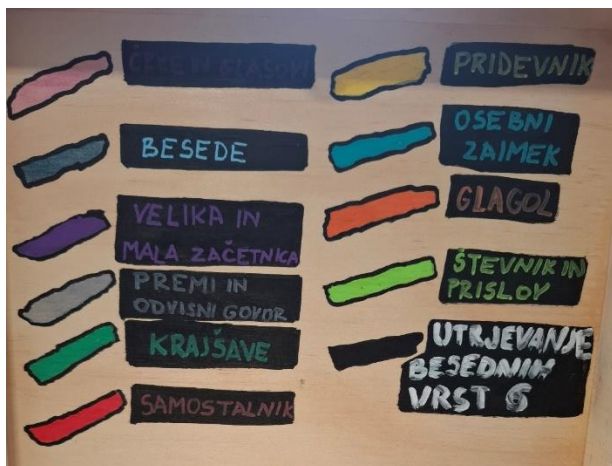 ČRKE IN GLASOVI
BESEDE
VELIKA IN
MALA ZAČETNICA
PREMI IN
ODVISNI GOVOR
KRAJŠAVE
SAMOSTALNIK
PRIDEVNIK
OSEBNI
ZAIMEK
GLAGOL
ŠTEVNIK IN
PRISLOV
UTRJEVANJE
BESEDNIH
VRST 6